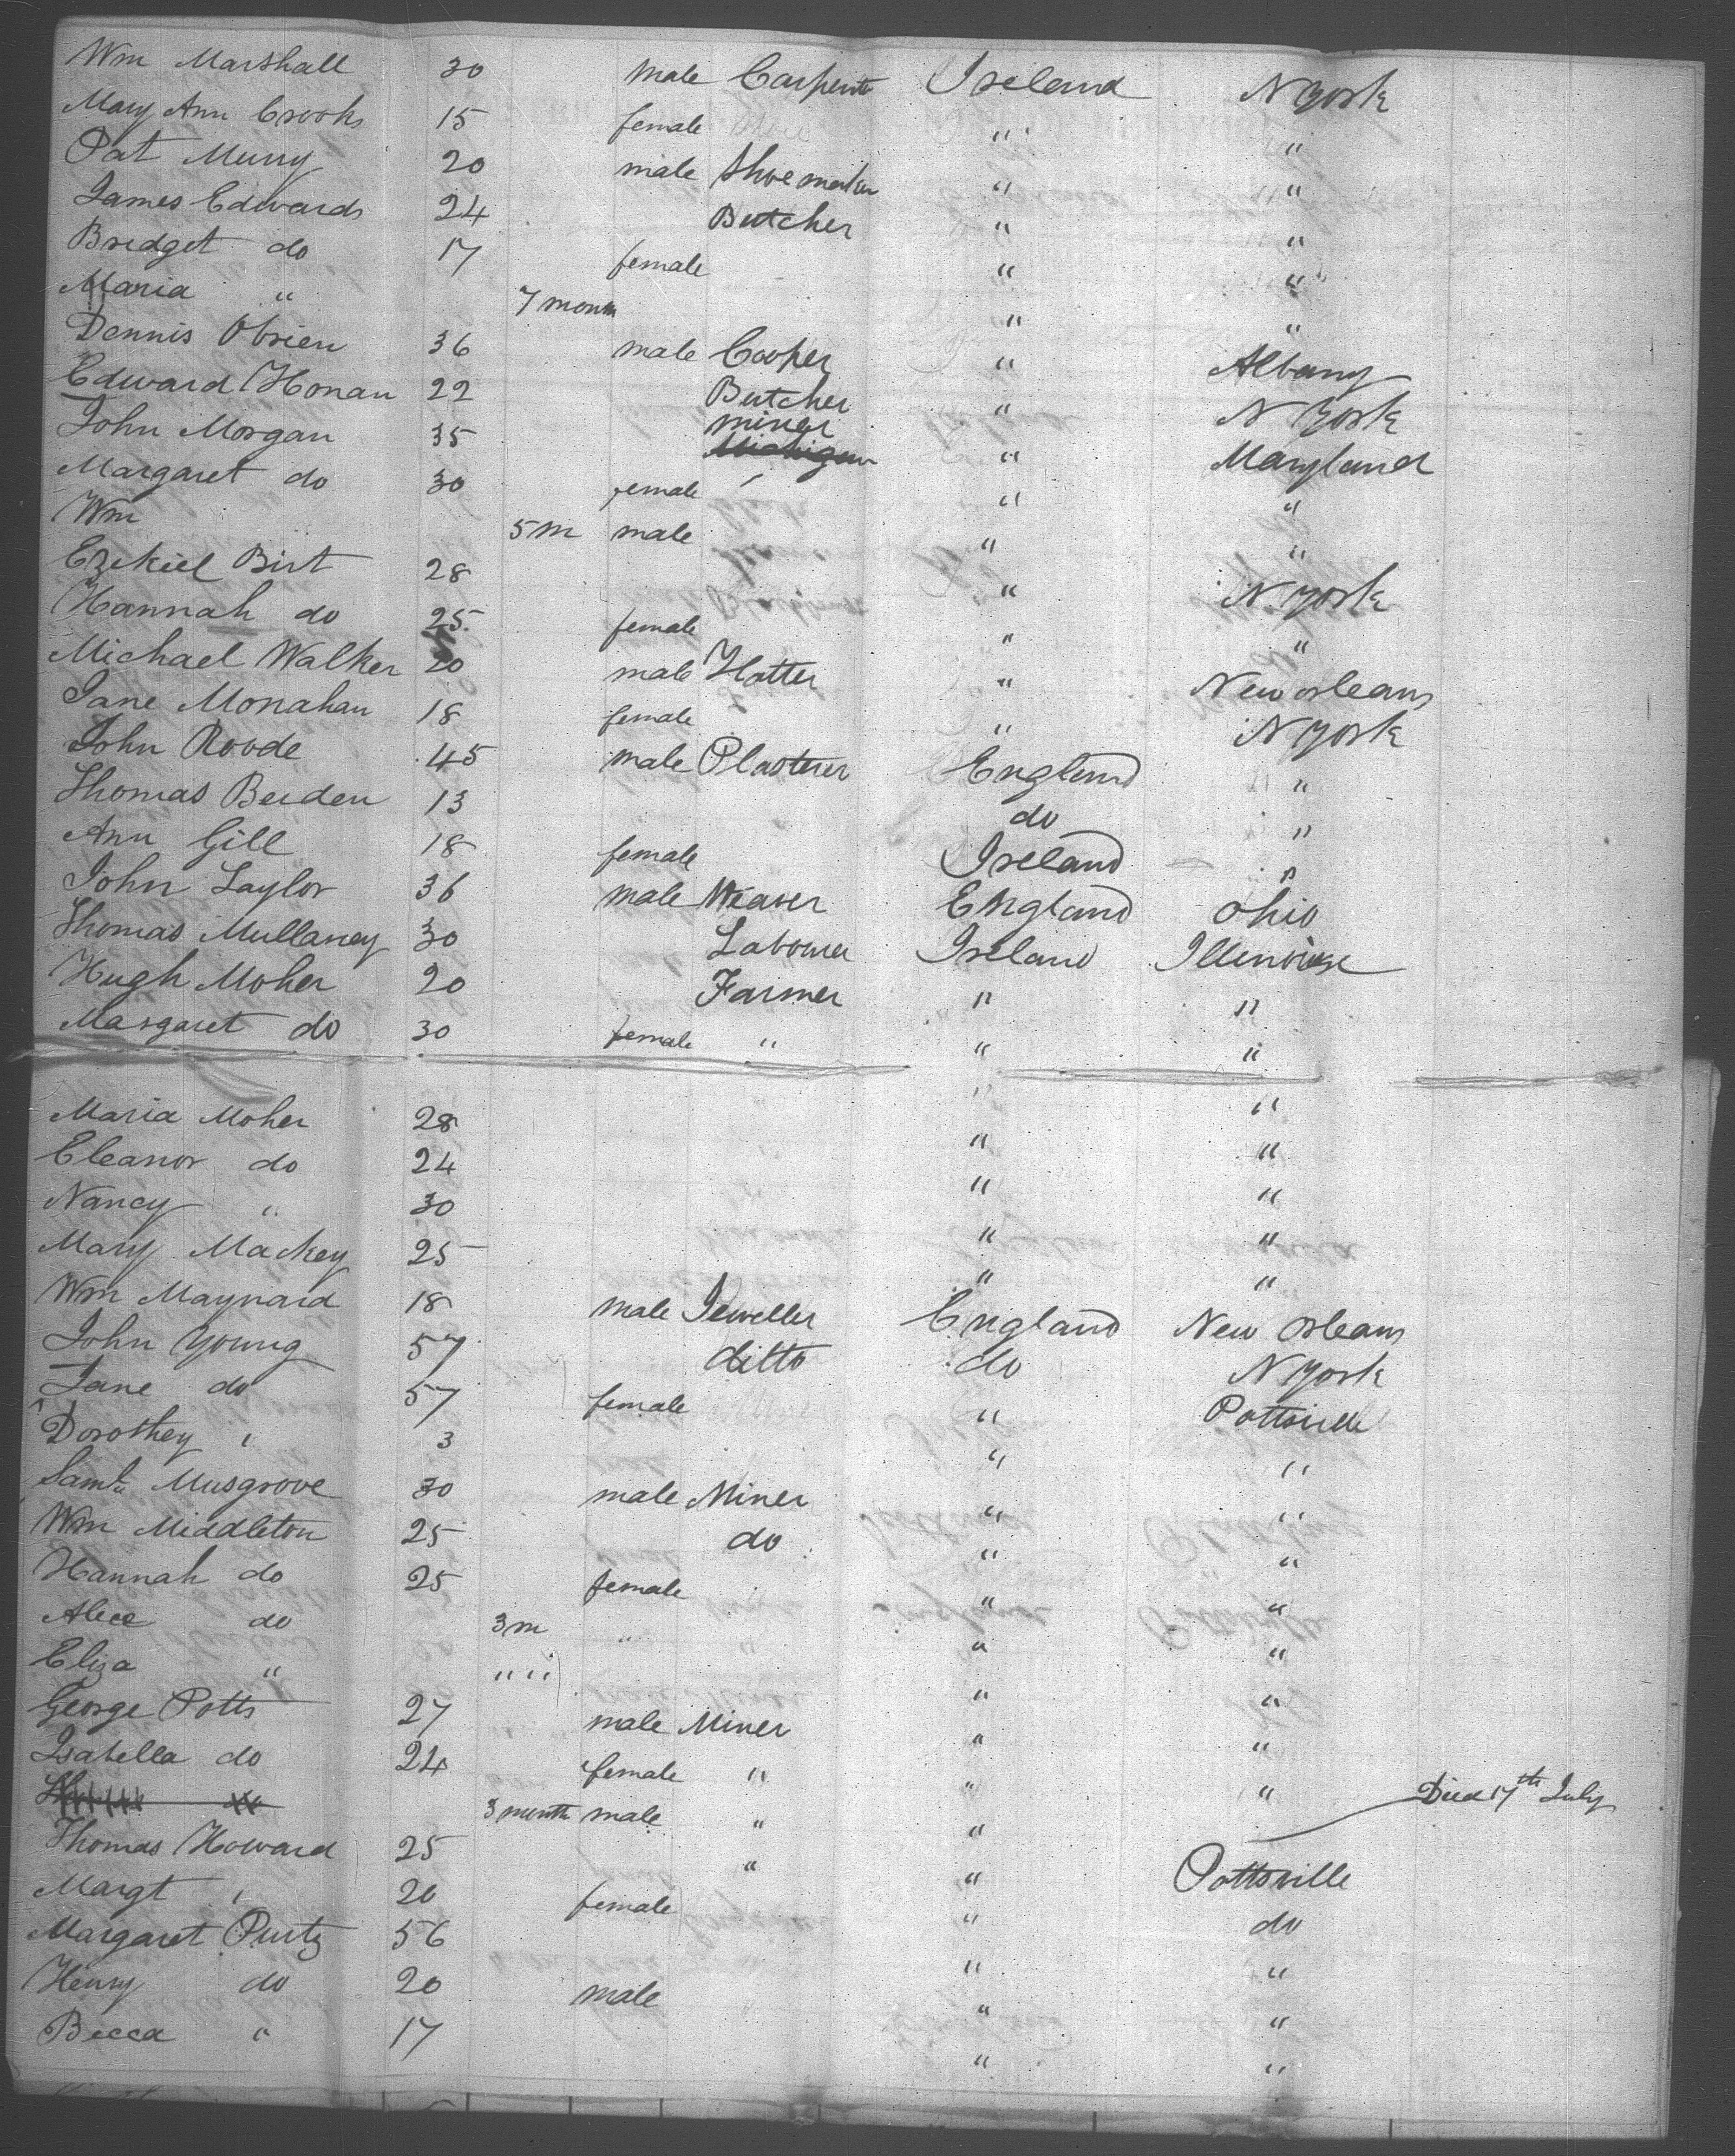 Wm Marshall 30 male Carpentr Ireland N York
Mary Ann Crooks 15 female " "
Pat Murry 20 male Shoemaker " "
James Edwards 24 Butcher " "
Bridget do 17 female " "
Maria " 7 month " "
Dennis Obrien 36 male Cooper " Albany
Edward Honan 22 Butcher " N York
John Morgan 35 miner " Maryland
Margaret do 30 female " "
Wm 5 m male " "
Ezekiel Birt 28 " N. York
Hannah do 25 female " "
Michael Walker 20 male Hatter " New orleans
Jane Monahan 18 female " N York
John Roode 45 male Plasterer England "
Thomas Berden 13 do "
Ann Gill 18 female Ireland "
John Taylor 36 male Weaver England Ohio
Thomas Mullaney 30 Labourer Ireland Illenoise
Hugh Moher 20 Farmer " "
Margaret do 30 female " " "
Maria Moher 28 " "
Eleanor do 24 " "
Nancy " 30 " "
Mary Mackey 25 " "
Wm Maynard 18 male Jeweller England New Orleans
John Young 57 ditto do N York
Jane do 57 female " Pottsville
Dorothey " 3 " "
Saml Musgrove 30 male Miner " "
Wm Middleton 25 do " "
Hannah do 25 female " "
Alice do 3 m " " "
Eliza " " " " "
George Potts 27 male Miner " "
Isabella do 24 female " " "
3 month male " " Died 17th July
Thomas Howard 25 " " Pottsville
Margt " 20 female " do
Margaret 56 " "
Henry do 20 male " "
Becca " 17 " "